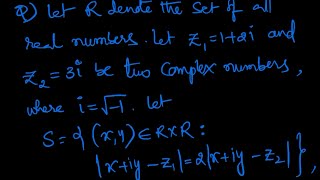 Q) Let R denote the set of all
real numbers. Let z₁=1+2i and
z₂=3i be two complex numbers,
where i=√-1. Let
S={(x,y)∈R×R:
|x+iy-z₁|=2|x+iy-z₂|},